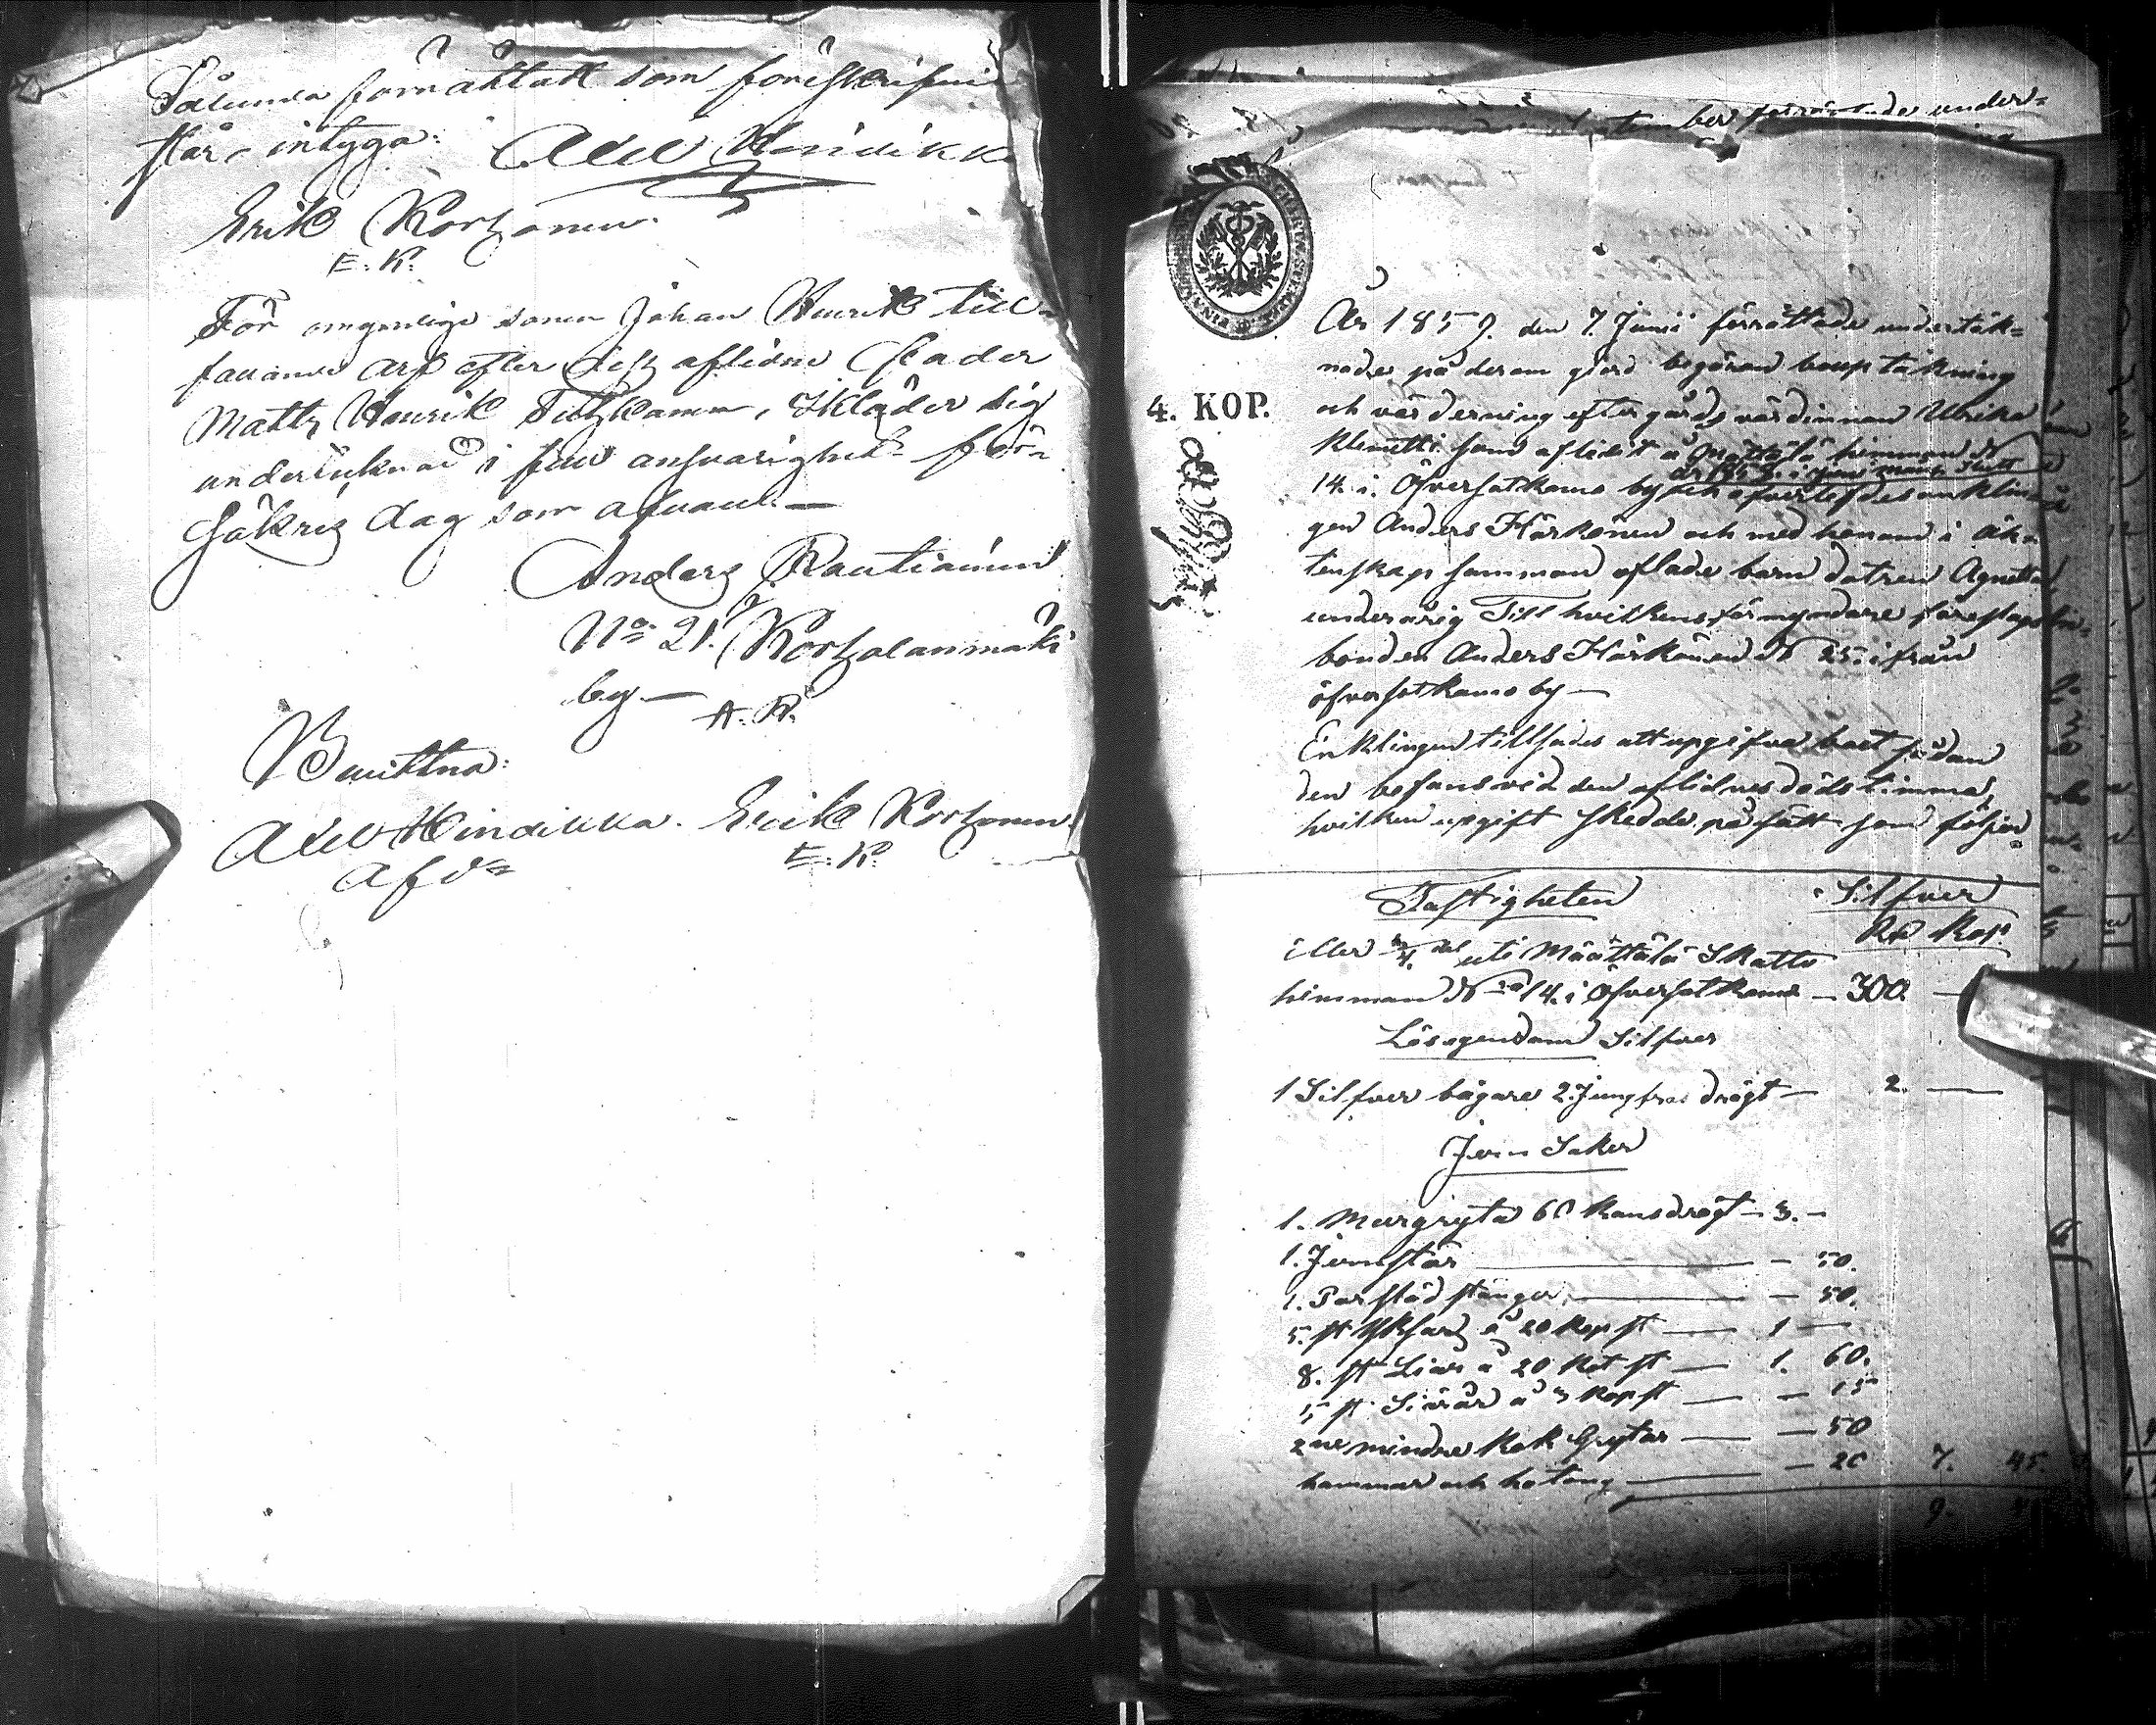 Sålunda förrättadt som föreskrifvit
står, intyga: Abel Hindikka
Erik Kortzonen
E. K.
För omyndige sonen Johan Henrik till-
fallande arf efter dess aflidne Fader
Matts Henrik Tickkanen, ikläder sig
undertecknad i full ansvarighet för
hvarje dag som
Anders Rautiainen
No 21. Kortzolanmäki
by— A. R.
Bevittna:
Abel Hindikka. Erik Kortzonen
E. K.
September förrättade under-
4. KOP.
År 1859. den 7. Junii förrättade underták-
nade på derom gjord begäran bouptäkning
och värdering efter gårds värdinnan Ulrika
Klemetti som aflidit å Määttälä hemman N
14. i Öfversotkamo by och efterlefdes enklin-
gen Anders Härkönen och med honom i äk-
tenskap samman aflade barn dotren Agnetta
underårig Till hvilkens förmyndare föreslogs
bonden Anders Härkönen N 25. ifrån
öfversotkamo by—
Enklingen tillsades att upgifva boet sådan
den befans vid den aflidnes dödstimma,
hvilken upgift skedde på sätt som följer
Fastigheten Silfver
Ru Kop.
del uti Määttälä Skatte
hemman No 14. i Öfversotkamo — 300. —
Lösegendom Silfver
1 Silfver bägare 2. Jungfrus drägt — 2. —
Jern Saker
1. Murgryta 60 kans drägt — 3. —
1. Jernstör — — 50.
1. Par städ stänger — — 50.
5. st Yksar á 20 Kop st — 1 —
8. st Liar á 20 Kop st — 1. 60.
5 st. Skäror á 3 Kop st — — 15
2ne mindre Kok Grytor — — 50
hammar och hotong — — 20 7. 45.
9. 45